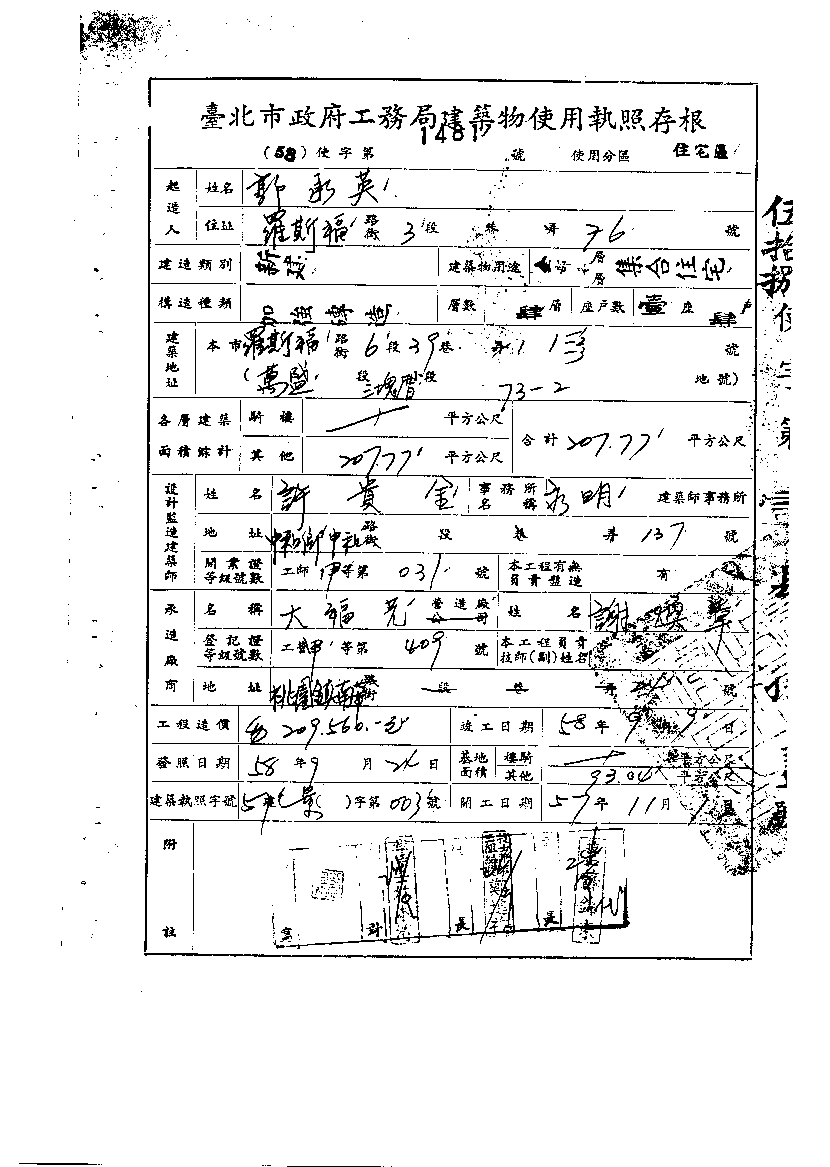 臺北市政府工務局建築物使用執照存根
(58)使字第1481號 使用分區 住宅區
起造人 姓名 郭承英
住址 羅斯福路街3段 巷 弄 76 號
建造類別 新建 建築物用途 層層集合住宅
構造種類 加強磚造 層數 肆層 座戶數 壹座肆戶
建築地址 本市羅斯福路街6段39巷 弄 號
(萬盛段三塊厝小段 73-2 地號)
各層建築面積總計 騎樓 平方公尺
其他 207.77 平方公尺 合計 207.77 平方公尺
設計監造建築師 姓名 許貴金 事務所名稱 永明 建築師事務所
地址 中和鄉中和路街 段 巷 弄 137 號
開業證等級號數 工師甲等第031號 本工程有無負責監造 有
承造廠商 名稱 大福 營造廠公司 姓名 謝
登記證等級號數 工營甲等第409號 本工程負責技師(副)姓名
地址 桃園鎮南華路街 段 巷 弄 號
工程造價 209.560.- 竣工日期 58年9月9日
發照日期 58年9月24日 基地面積 樓騎 平方公尺
其他 93.04 平方公尺
建築執照字號 57 字第003號 開工日期 57年11月 日
附註
伍拾捌使字第